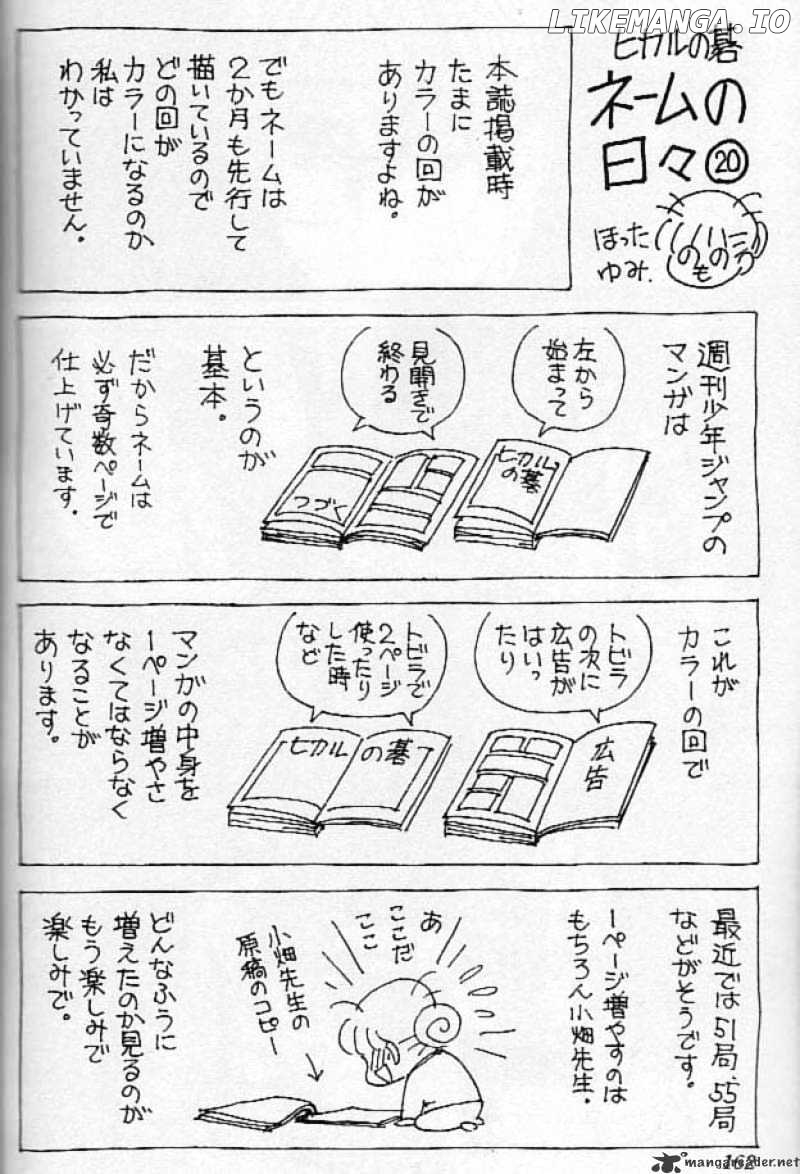 LIKEMANGA.IO
ヒカルの碁
ネームの
日々⑳
ほった
ゆみ.
本誌掲載時
たまに
カラーの回が
ありますよね。
でもネームは
2か月も先行して
描いているので
どの回が
カラーになるのか
私は
わかっていません。
週刊少年ジャンプの
マンガは
左から
始まって
ヒカル
の碁
見開きで
終わる
つづく
というのが
基本。
だからネームは
必ず奇数ページで
仕上げています.
これが
カラーの回で
トビラ
の次に
広告が
はいっ
たり
広告
トビラで
2ページ
使ったり
した時
など
ヒカルの碁
マンガの中身を
1ページ増やさ
なくてはならなく
なることが
あります。
最近では51局、55局
などがそうです。
1ページ増やすのは
もちろん小畑先生.
あ
ここだ
ここ
小畑先生の
原稿のコピー
どんなふうに
増えたのか見るのが
もう楽しみで
楽しみで。
mangareader.net